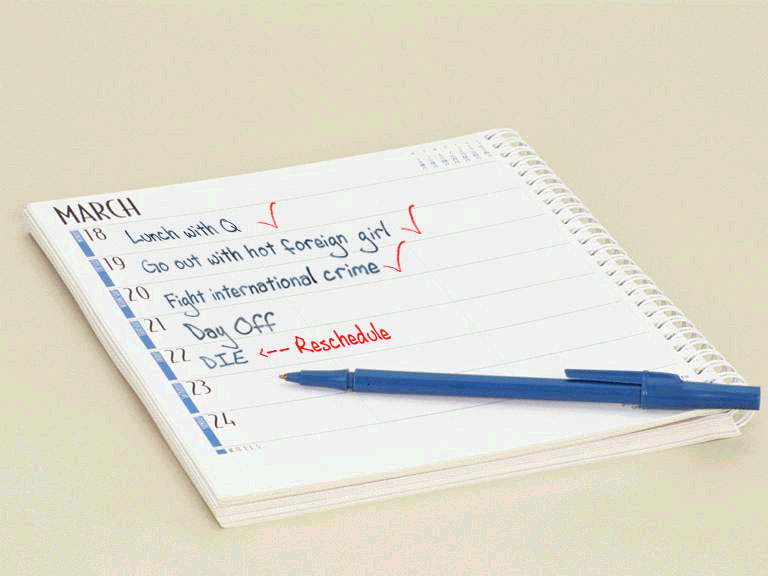 MARCH
18 Lunch with Q
19 Go out with hot foreign girl
20 Fight international crime
21 Day Off
22 DIE <-- Reschedule
23
24
NOTES